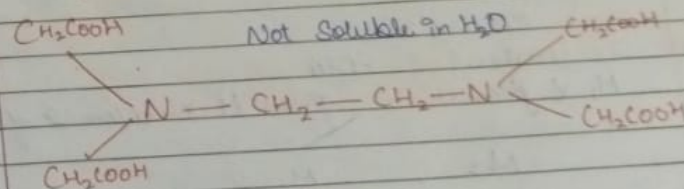 CH₂COOH Not Soluble in H₂O CH₂COOH
N — CH₂ — CH₂ — N
CH₂COOH
CH₂COOH